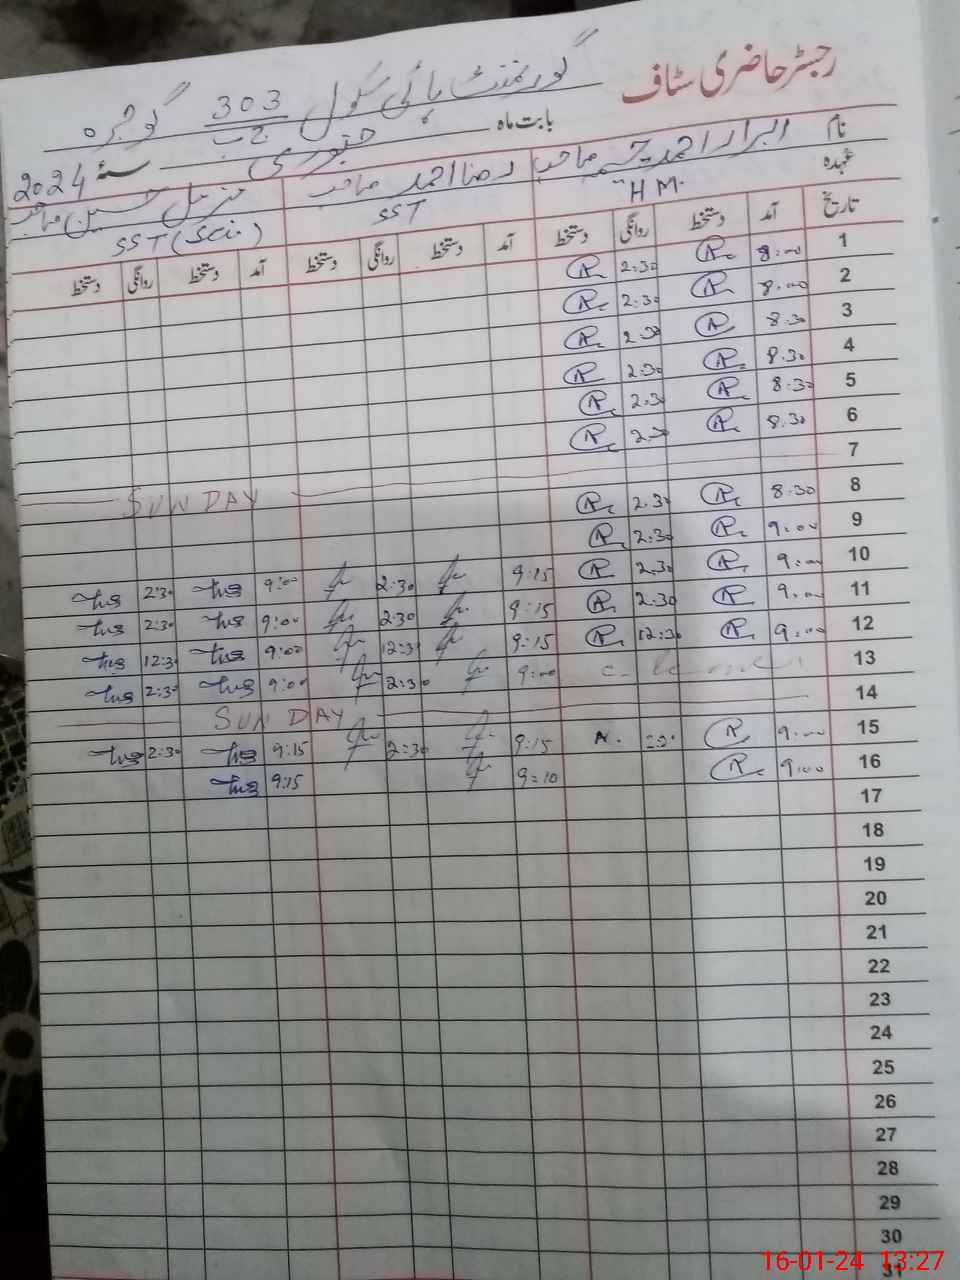 رجسٹر حاضری سٹاف
گورنمنٹ ہائی سکول 303 ج ب گوجرہ
بابت ماہ جنوری سنۂ 2024
نام ابرار احمد صاحب رضا احمد صاحب مزمل حسین صاحب
عہدہ H M. SST SST (Sci.)
تاریخ آمد دستخط روانگی دستخط آمد دستخط روانگی دستخط آمد دستخط روانگی دستخط
1 8:00 2.30
2 8:00 2:30
3 8.30 2.30
4 8.30 2.30
5 8:30 2.30
6 8.30 2.30
7 SUNDAY
8 8:30 2.30
9 9:00 2:30
10 9:00 2.30 9:15 2:30 9:00 2:30
11 9:00 2:30 9:15 2:30 9:00 2:30
12 9:00 12:30 9:15 12:30 9:00 12:30
13 9:00 2:30 9:00 2:30
14 SUNDAY
15 9:00 9:15 2:30 9:15 2:30
16 9:00 9:10 9:15
17
18
19
20
21
22
23
24
25
26
27
28
29
30
31
16-01-24 13:27